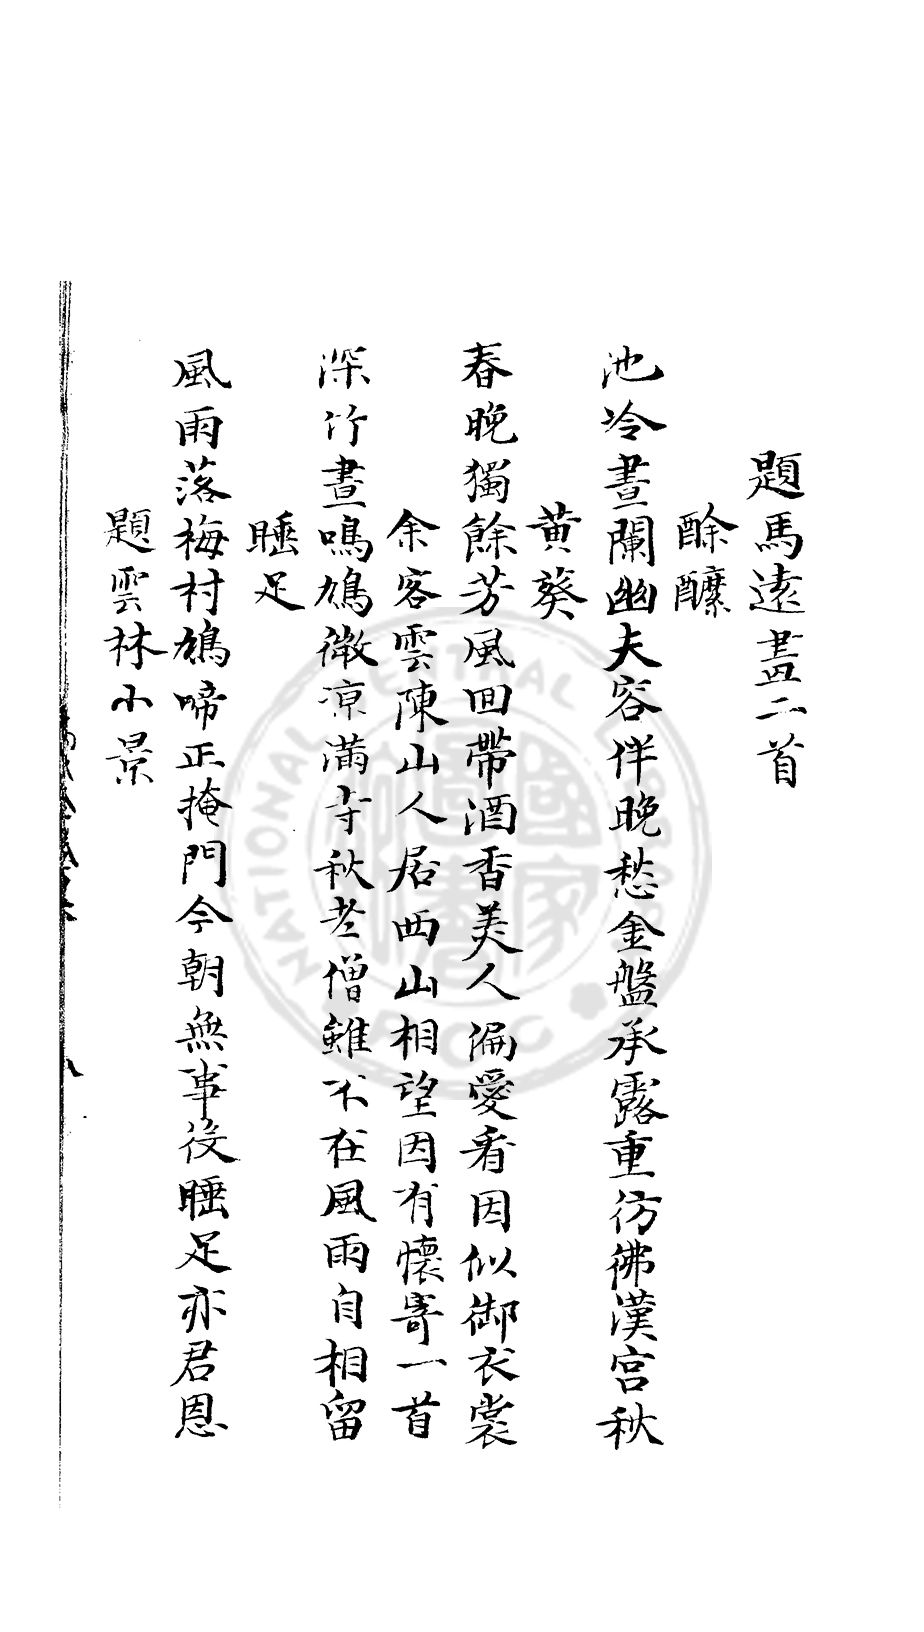 題馬遠畫二首
酴醾
池冷晝闌幽夫容伴晚愁金盤承露重彷彿漢宮秋
黃葵
春晚獨餘芳風回帶酒香美人偏愛看因似御衣裳
余客雲陳山人居西山相望因有懷寄一首
深竹晝鳴鳩微凉滿寺秋老僧雖不在風雨自相留
睡足
風雨落梅村鳩啼正掩門今朝無事役睡足亦君恩
題雲林小景
八
NATIONAL CENTRAL LIBRARY
R.O.C.
國家圖書館